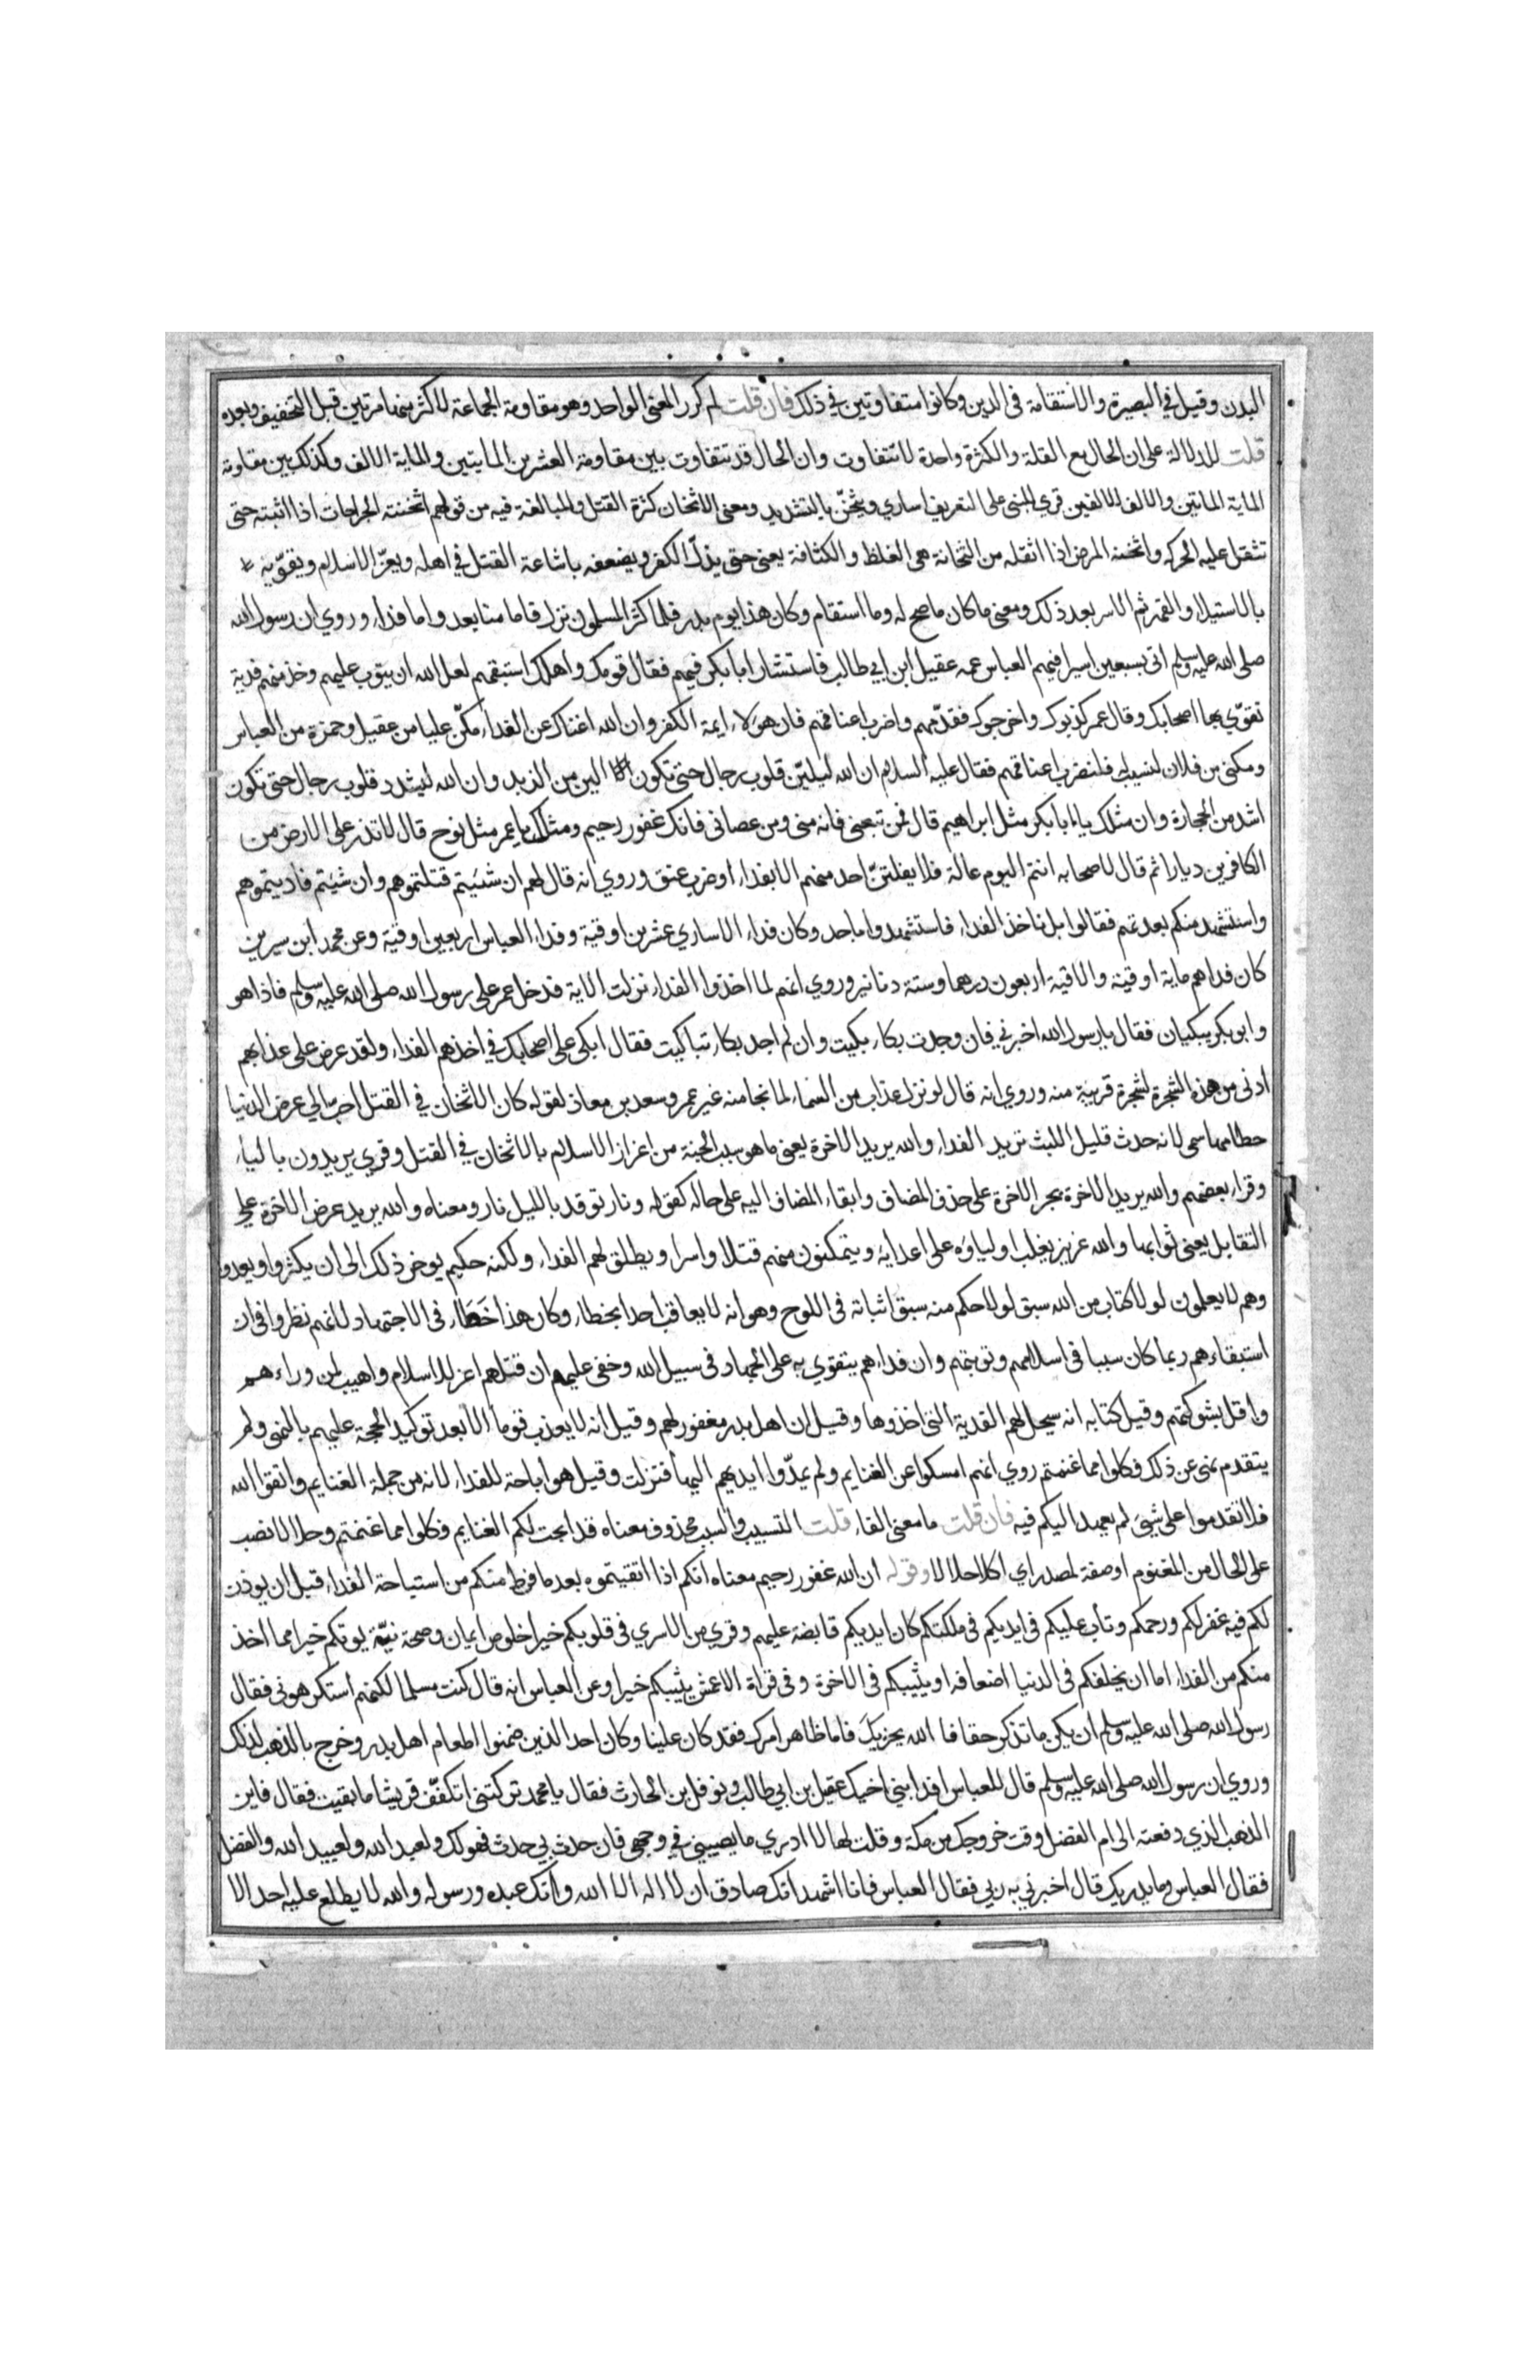 البدن وقيل في البصيرة والاستقامة في الدين وكانوا متفاوتين في ذلك فان قلت لم كرر المعنى الواحد وهو مقاومة الجماعة لاكثر منها مرتين قبل التخفيف وبعده
قلت للدلالة على ان الحال مع القلة والكثرة واحدة لا تتفاوت وان الحال قد تتفاوت بين مقاومة العشرين المايتين والماية الالف وكذلك بين مقاومة
الماية الماتين والالف الالفين قري للنبي على التعريف اساري ويثخنّ بالتشديد ومعنى الاثخان كثرة القتل والمبالغة فيه من قولهم اثخنته الجراحات اذا اثبته حتى
تثقل عليه الحركه واثخنه المرض اذا اثقله من الثخانة هى الغلظ والكثافة يعنى حتى يذلّ الكفر ويضعفه باشاعة القتل في اهله ويعزّ الاسلام ويقوّيه
بالاستيلاء والقهر ثم الاسر بعد ذلك ومعنى ما كان ما صح له وما استقام وكان هذا يوم بدر فلما كثر المسلمون نزل فاما منا بعد واما فداء وروي ان رسول الله
صلى الله عليه وسلم اتى بسبعين اسيرا فيهم العباس عمه عقيل ابن ابي طالب فاستشار ابا بكر فيهم فقال قومك واهلك استبقهم لعل الله ان يتوب عليهم وخذ منهم فدية
تقوّي بها اصحابك وقال عمر كذبوك واخرجوك فقدّمهم واضرب اعناقهم فان هولاء ايمة الكفر وان الله اغناك عن الفداء مكّن عليا من عقيل وحمزة من العباس
ومكني من فلان لنسيب فلنضرب اعناقهم فقال عليه السلام ان الله ليليّن قلوب رجال حتى تكون الين من الزبد وان الله ليشدد قلوب رجال حتى تكون
اشد من الحجارة وان مثلك يا ابا بكر مثل ابراهيم قال فمن تبعنى فانه منى ومن عصانى فانك غفور رحيم ومثلك يا عمر مثل نوح قال لا تذر على الارض من
الكافرين ديارا ثم قال لاصحابه انتم اليوم عالة فلا يفلتنّ احد منهم الا بفداء او ضرب عنق وروي انه قال لهم ان شئيتم قتلتموهم وان شئيتم فاديتموهم
واستشهد منكم بعدتهم فقالوا بل ناخذ الفداء فاستشهدوا باحد وكان فداء الاساري عشرين اوقية وفداء العباس اربعين اوقية وعن محمد ابن سيرين
كان فداهم ماية اوقية والاقية اربعون درهما وستة دنانير وروي انهم لما اخذوا الفداء نزلت الاية فدخل عمر على رسول الله صلى الله عليه وسلم فاذا هو
وابو بكر يبكيان فقال يا رسول الله اخبرني فان وجدت بكاء بكيت وان لم اجد بكاء تباكيت فقال ابكى على اصحابك في اخذهم الفداء ولقد عرض على عذابهم
ادنى من هذه الشجرة لشجرة قريبة منه وروي انه قال لو نزل عذاب من السماء لما نجا منه غير عمر وسعد بن معاذ لقوله كان الاثخان في القتل احبّ الي عرض الدنيا
حطامها سمى لانه حدث قليل اللبث تريد الفداء والله يريد الاخرة يعنى ما هو سبب الجنة من اعزاز الاسلام بالاثخان في القتل وقري يريدون بالياء
وقراء بعضهم والله يريد الاخرة بجر الاخرة على حذف المضاف وابقاء المضاف اليه على حاله كقوله ونار توقد بالليل نار ومعناه والله يريد عرض الاخرة على
التقابل يعنى ثوابها والله عزيز يغلب اولياؤه على اعدايه ويتمكنون منهم قتلا واسرا ويطلق لهم الفداء ولكنه حكيم يوخر ذلك الى ان يكثروا ويعدوا
وهم لا يعلمون لولا كتاب من الله سبق لولا حكم منه سبق اثباته فى اللوح وهو انه لا يعاقب احد بخطاء وكان هذا خطاء فى الاجتهاد لانهم نظروا فى ان
استبقاءهم ربما كان سببا فى اسلامهم وتوبتهم وان فداءهم يتقوي به على الجهاد فى سبيل الله وخفى عليهم ان قتلهم اعز للاسلام واهيب لمن وراءهم
واقل بشوكتهم وقيل كتابه انه سيحل لهم الفدية التى اخذوها وقيل ان اهل بدر مغفور لهم وقيل انه لا يعذب قوما الا بعد توكيد الحجة عليهم بالنهى ولم
يتقدم نهى عن ذلك فكلوا مما غنمتم روي انهم امسكوا عن الغنايم ولم يمدّوا ايديهم اليها فنزلت وقيل هو اباحة للفداء لانه من جملة الغنايم واتقوا الله
فلا تقدموا على شيئ لم يعهد اليكم فيه فان قلت ما معنى الفاء قلت التسبيب والسبب محذوف معناه قد ابحت لكم الغنايم فكلوا مما غنمتم وحلالا نصب
على الحال من المغنوم او صفة لمصدر اي اكلا حلالا وقوله ان الله غفور رحيم معناه انكم اذا اتقيتموه بعد ما فرط منكم من استباحة الفداء قبل ان يوذن
لكم فيه غفر لكم ورحمكم وتاب عليكم فى ايديكم فى ملكتكم كان ايديكم قابضة عليهم وقري من الاسري فى قلوبكم خيرا خلوص ايمان وصحة نيّة يوتكم خيرا مما اخذ
منكم من الفداء اما ان يخلفكم فى الدنيا اضعافه او يثيبكم فى الاخرة وفى قراة الاعمش يثيبكم خيرا وعن العباس انه قال كنت مسلما لكنهم استكرهونى فقال
رسول الله صلى الله عليه وسلم ان يكن ما تذكر حقا فا الله يجزيك فاما ظاهر امرك فقد كان علينا وكان احد الذين ضمنوا اطعام اهل بدر وخرج بالذهب لذلك
وروي ان رسول الله صلى الله عليه وسلم قال للعباس افد ابني اخيك عقيل بن ابي طالب ونوفل بن الحارث فقال يا محمد تركتنى اتكفّف قريشا ما بقيت فقال فاين
الذهب الذي دفعته الى ام الفضل وقت خروجك من مكة وقلت لها لا ادري ما يصيبني في وجهى فان حدث بي حدث فهو لك ولعبد الله ولعبيد الله والفضل
فقال العباس وما يدريك قال اخبرني به ربي فقال العباس فانا اشهد انك صادق ان لا اله الا الله وانك عبده ورسوله والله لا يطلع عليه احد الا